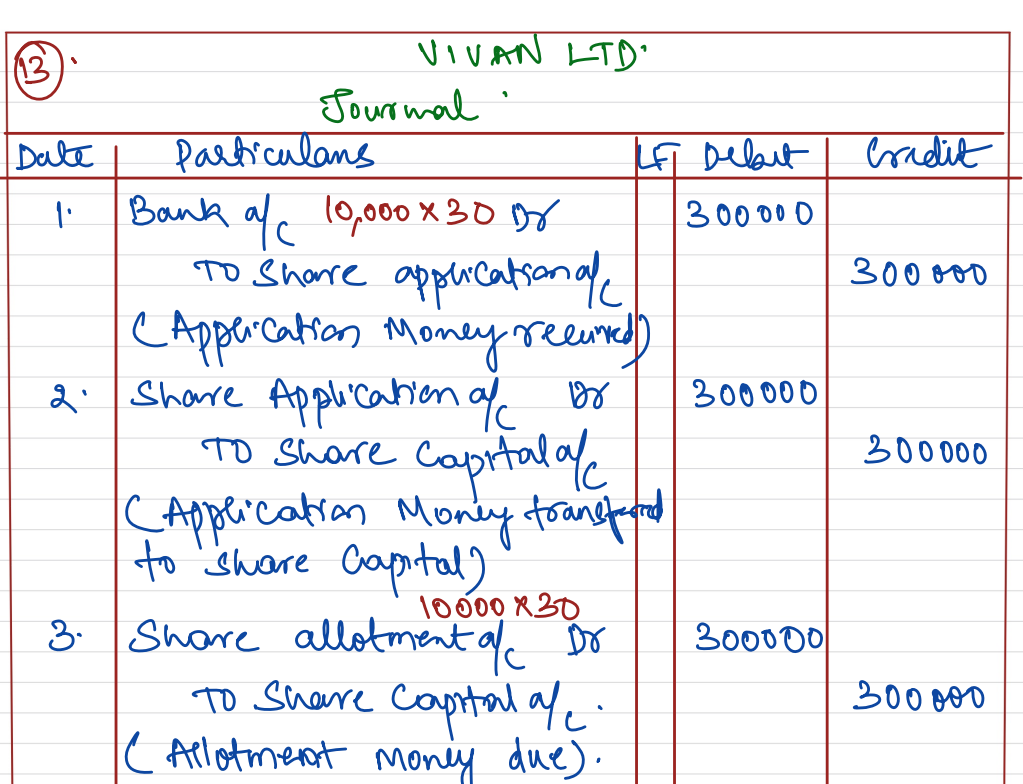 13. VIVAN LTD.
Journal
Date Particulars LF Debit Credit
1. Bank a/c 10,000 × 30 Dr 300000
To Share application a/c 300000
(Application Money received)
2. Share Application a/c Dr 300000
To Share Capital a/c 300000
(Application Money transferred
to share Capital)
10000 × 30
3. Share allotment a/c Dr 300000
To Share Capital a/c. 300000
(Allotment money due).